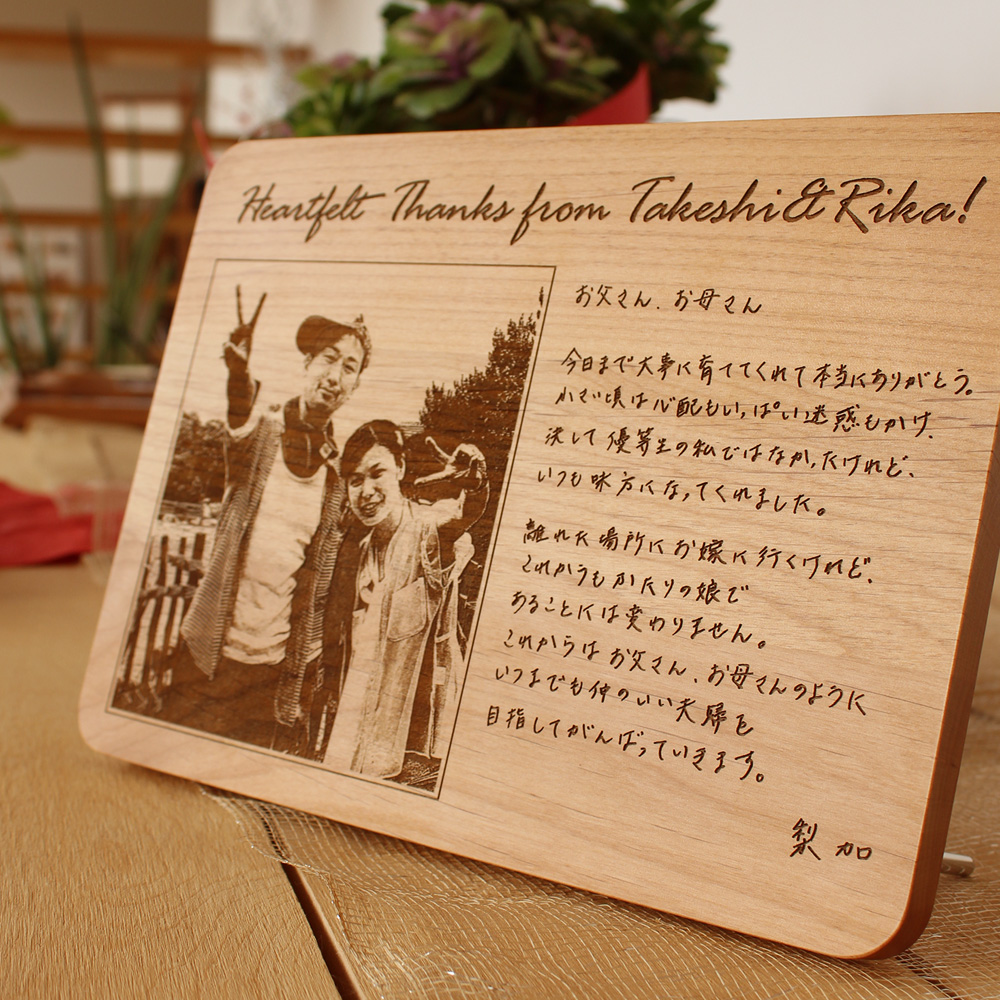 Heartfelt Thanks from Takeshi & Rika!
お父さん、お母さん
今日まで大事に育ててくれて本当にありがとう。
小さい頃は心配もいっぱい迷惑もかけ、
決して優等生の私ではなかったけれど、
いつも味方になってくれました。
離れた場所にお嫁に行くけれど、
これからもふたりの娘で
あることには変わりません。
これからはお父さん、お母さんのように
いつまでも仲のいい夫婦を
目指してがんばっていきます。
梨加